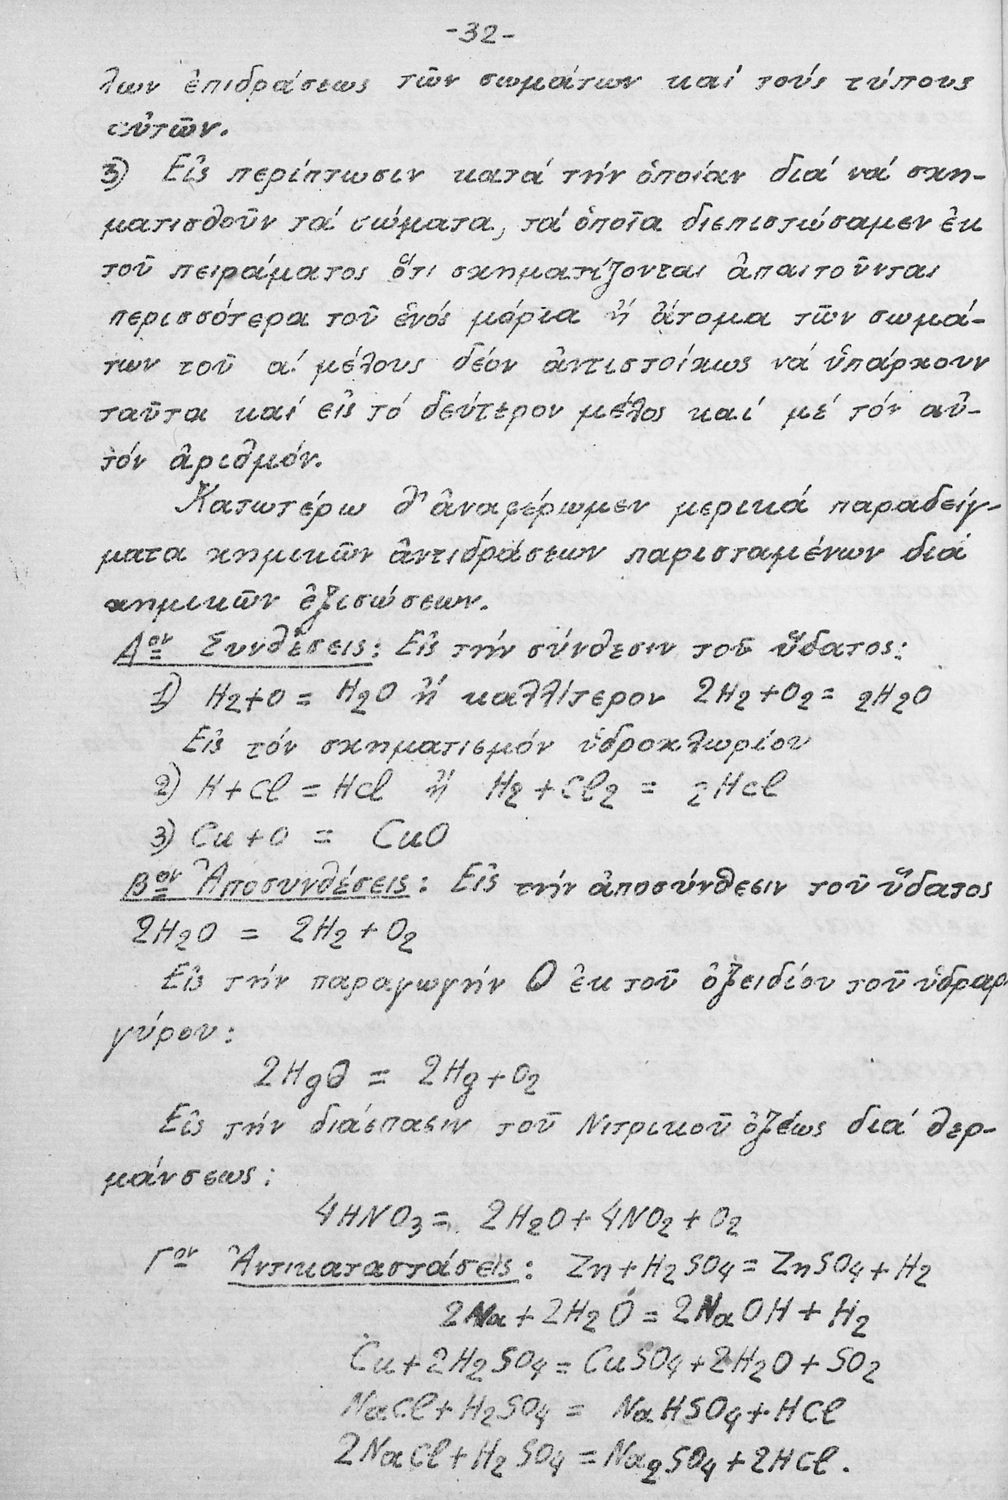 -32-
λων ἐπιδράσεως τῶν σωμάτων καί τούς τύπους
αὐτῶν.
3) Εἰς περίπτωσιν κατά τήν ὁποίαν διά νά σχη-
ματισθοῦν τά σώματα, τά ὁποῖα διεπιστώσαμεν ἐκ
τοῦ πειράματος ὅτι σχηματίζονται ἀπαιτοῦνται
περισσότερα τοῦ ἑνός μόρια ἤ ἄτομα τῶν σωμά-
των τοῦ α! μέλους δέον ἀντιστοίχως νά ὑπάρχουν
ταῦτα καί εἰς τό δεύτερον μέλος καί μέ τόν αὐ-
τόν ἀριθμόν.
Κατωτέρω θ' ἀναφέρωμεν μερικά παραδείγ-
ματα χημικῶν ἀντιδράσεων παρισταμένων διά
χημικῶν ἐξισώσεων.
Αον Συνθέσεις: Εἰς τήν σύνθεσιν τοῦ ὕδατος:
1) H2+O = H2O ἤ καλλίτερον 2H2+O2= 2H2O
Εἰς τόν σχηματισμόν ὑδροχλωρίου
2) H+Cl = HCl ἤ H2+Cl2 = 2HCl
3) Cu+O = CuO
Βον Ἀποσυνθέσεις: Εἰς τήν ἀποσύνθεσιν τοῦ ὕδατος
2H2O = 2H2+O2
Εἰς τήν παραγωγήν O ἐκ τοῦ ὀξειδίου τοῦ ὑδραρ-
γύρου:
2HgO = 2Hg+O2
Εἰς τήν διάσπασιν τοῦ Νιτρικοῦ ὀξέως διά θερ-
μάνσεως:
4HNO3= 2H2O+4NO2+O2
Γον Ἀντικαταστάσεις: Zn+H2SO4=ZnSO4+H2
2Na+2H2O=2NaOH+H2
Cu+2H2SO4=CuSO4+2H2O+SO2
NaCl+H2SO4= NaHSO4+HCl
2NaCl+H2SO4=Na2SO4+2HCl.